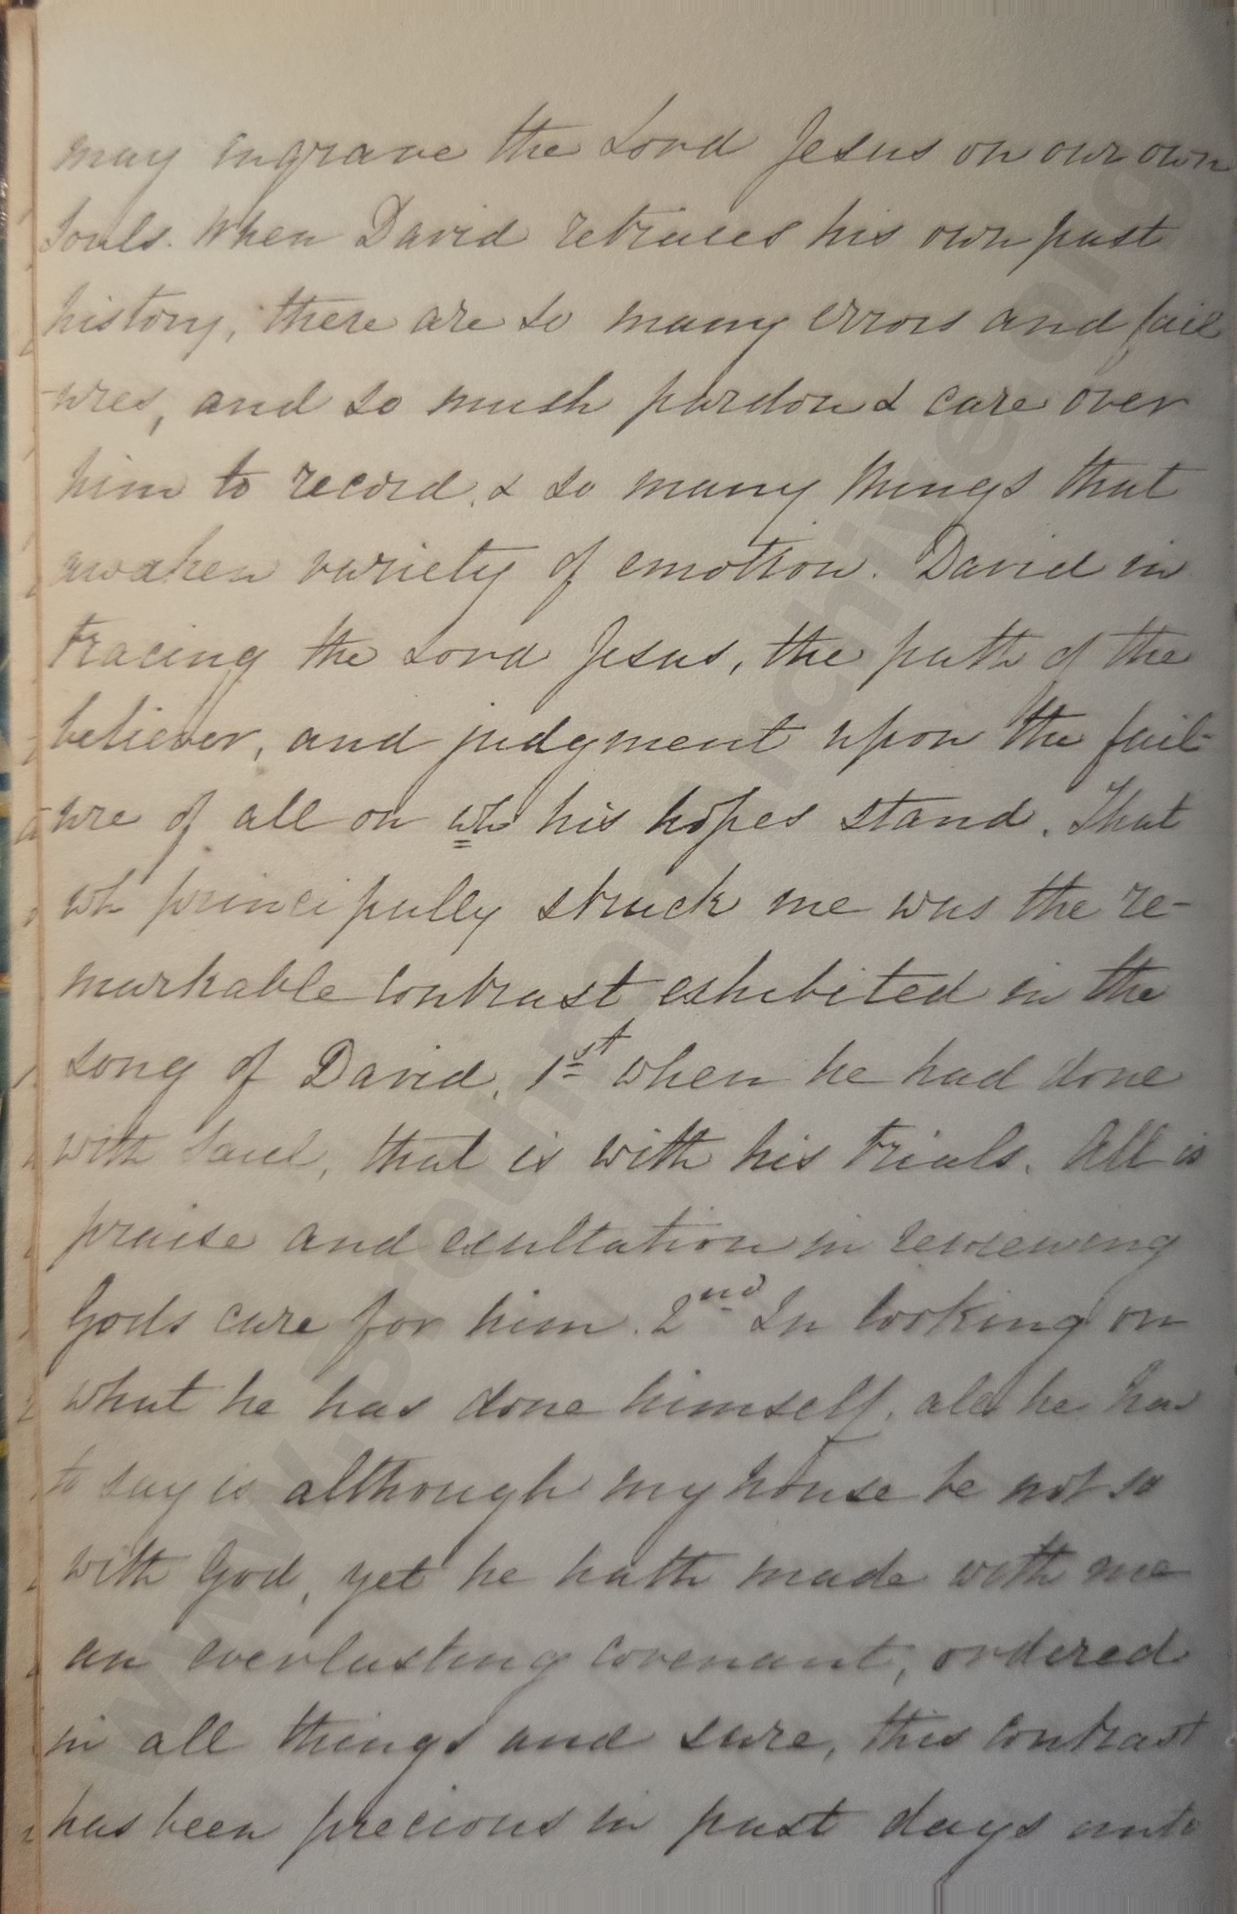 may ingrave the Lord Jesus on our own
Souls. When David retraces his own past
history, there are so many errors and fail
-ures, and so much pardon & care over
him to record, & so many things that
awaken variety of emotion. David in
tracing the Lord Jesus, the path of the
believer, and judgment upon the fail-
ure of all on wh his hopes stand. That
wh principally struck me was the re-
markable contrast exhibited in the
song of David, 1st when he had done
with Saul, that is with his trials. All is
praise and exultation in reviewing
Gods care for him. 2nd In looking on
what he has done himself, all he has
to say is although my house be not so
with God, yet he hath made with me
an everlasting covenant, ordered
in all things and sure, this contrast
has been precious in past days unto
www.BrethrenArchive.org